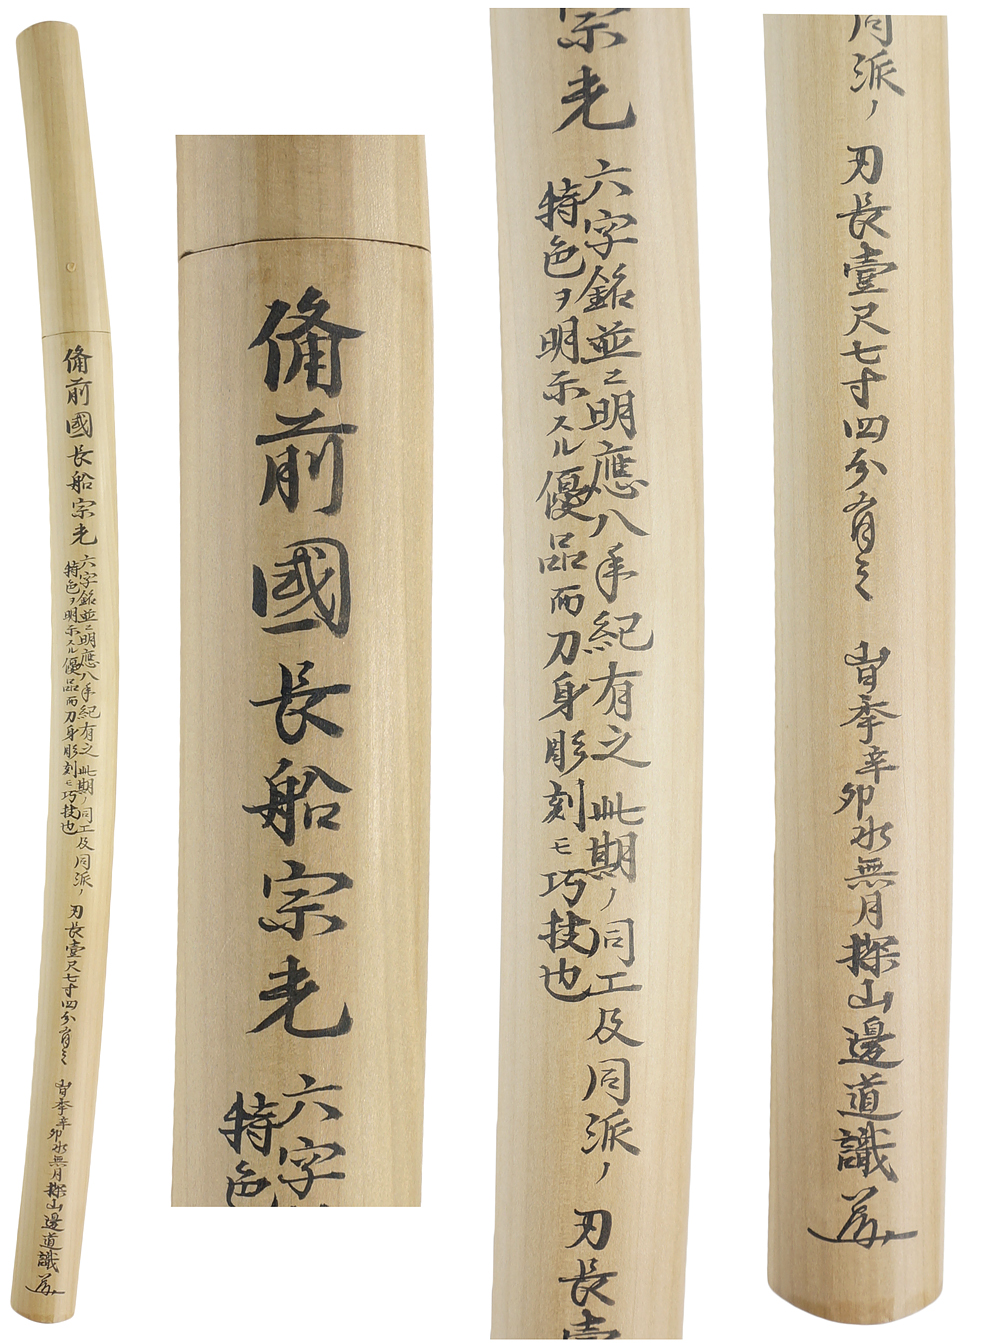 備前國長船宗光
六字銘並ニ明應八年紀有之此期ノ同工及同派ノ
特色ヲ明示スル優品而刀身彫刻モ巧技也
刃長壹尺七寸四分有之
旹季辛卯水無月探山邊道識
備前國長船宗光
六字
特色
宗光
六字銘並ニ明應八年紀有之此期ノ同工及同派ノ
特色ヲ明示スル優品而刀身彫刻モ巧技也
刃長壹
同派ノ
刃長壹尺七寸四分有之
旹季辛卯水無月探山邊道識